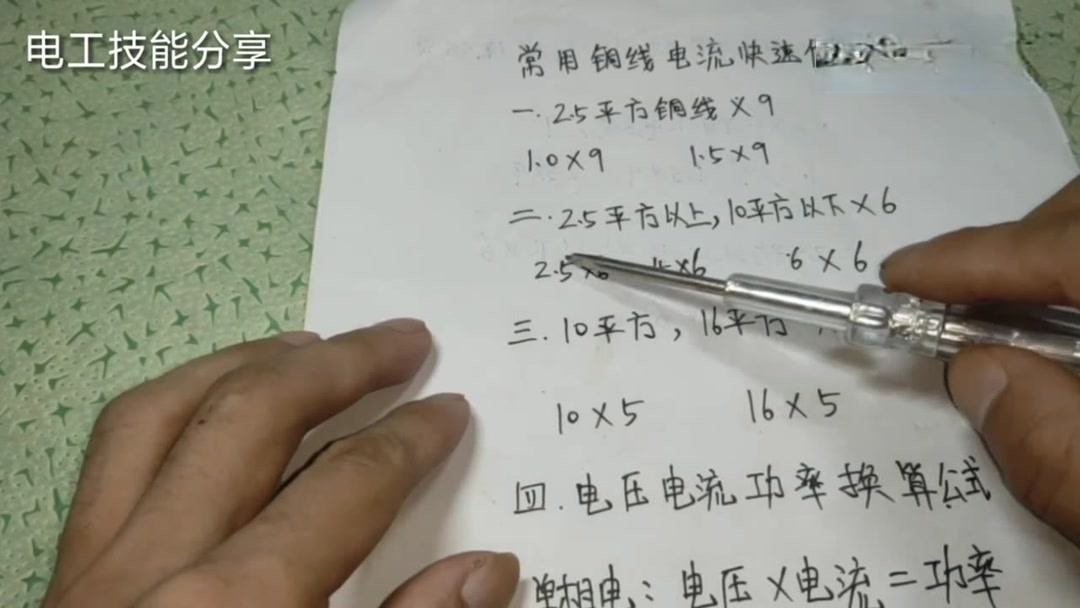 电工技能分享
常用铜线电流快速
一.2.5平方铜线×9
1.0×9 1.5×9
二.2.5平方以上,10平方以下×6
2.5×6 ×6 6×6
三.10平方,16平方
10×5 16×5
四.电压电流功率换算公式
单相电:电压×电流=功率